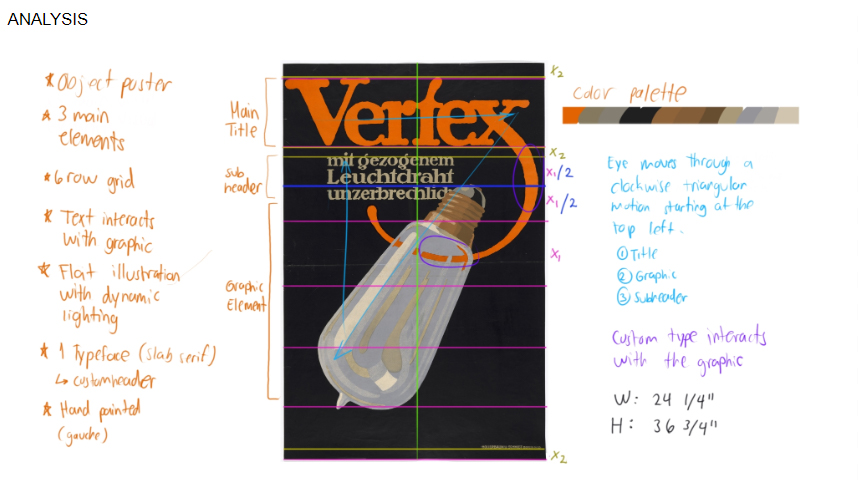 ANALYSIS
★ Object poster
★ 3 main
elements
★ 6 row grid
★ Text interacts
with graphic
★ Flat illustration
with dynamic
lighting
★ 1 Typeface (slab serif)
↳ custom header
★ Hand painted
(gauche)
Main
Title
sub
header
Graphic
Element
Vertex
mit gezogenem
Leuchtdraht
unzerbrechlich
x2
x2
x1/2
x1/2
x1
x2
color palette
Eye moves through a
clockwise triangular
motion starting at the
top left.
① Title
② Graphic
③ Subheader
Custom type interacts
with the graphic
W: 24 1/4"
H: 36 3/4"